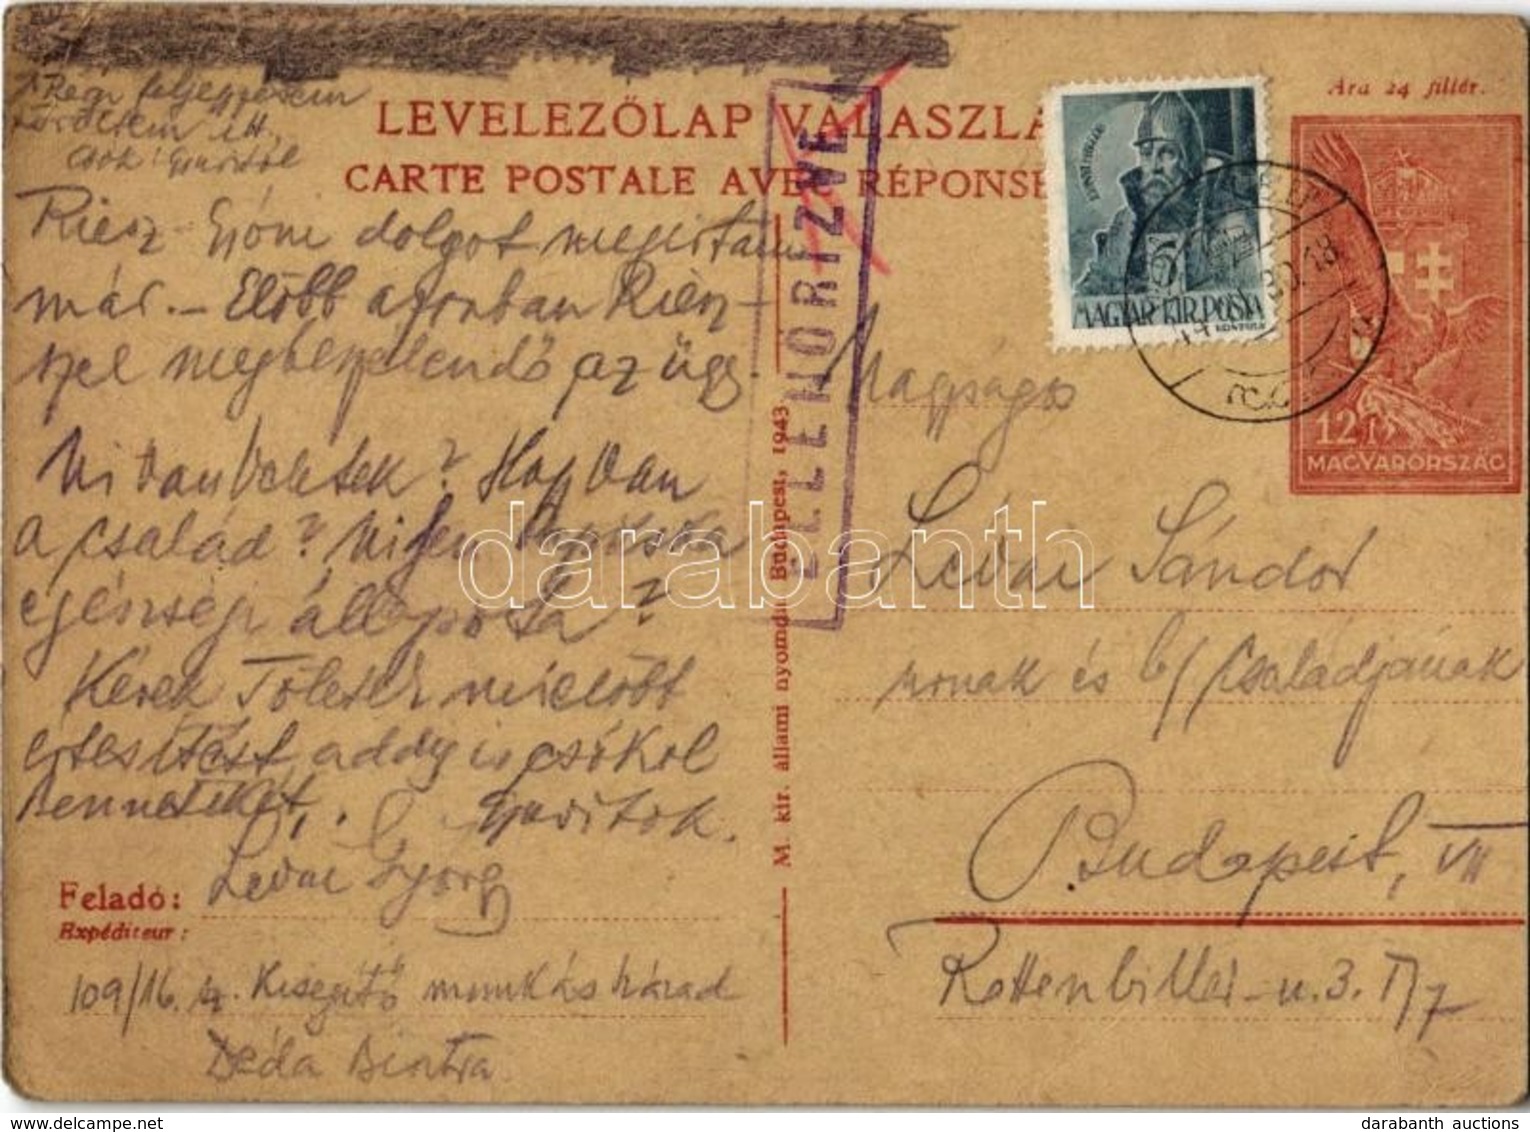 Régi feljegyzésem
kérdésem itt.
Csók: Gyuritól
LEVELEZŐLAP VÁLASZLA
CARTE POSTALE AVEC RÉPONSE
Ára 24 fillér.
ELLENŐRIZVE
MAGYAR KIR. POSTA
12f
MAGYARORSZÁG
Riesz dolgot megirtam
már. – Előbb azonban Riesz-
szel megbeszélendő az ügy.
Mi van Veletek? Hogy van
a család? Milyen
egészségi állapota?
Kérek Töletek mielöbb
értesitést, addig is csókol
Benneteket,
Gyuritok.
Lévai György
Feladó:
Expéditeur:
109/16. Kisegitő munkás század
Déda Bisztra
M. kir. állami nyomda, Budapest, 1943
Nagyságos
Lévai Sándor
urnak és b/ családjának
Budapest, VII
Rottenbiller-u. 3.
darabanth
darabanth auctions